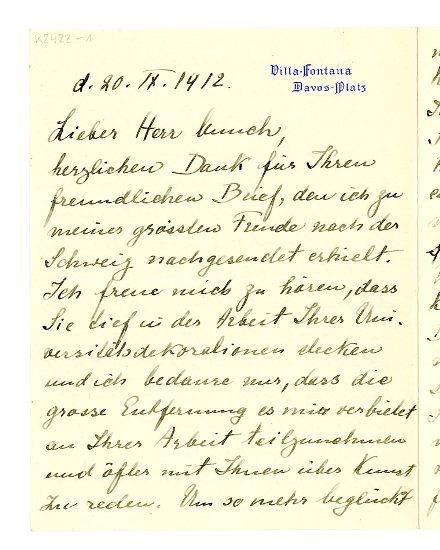 K2422-1
Villa-Fontana
Davos-Platz
d. 20. IX. 1912.
Lieber Herr Munch,
herzlichen Dank für Ihren
freundlichen Brief, den ich zu
meiner grössten Freude nach der
Schweiz nachgesendet erhielt.
Ich freue mich zu hören, dass
Sie tief in der Arbeit Ihrer Uni-
versitätsdekorationen stecken
und ich bedaure nur, dass die
grosse Entfernung es mir verbietet
an Ihrer Arbeit teilzunehmen
und öfter mit Ihnen über Kunst
zu reden. Um so mehr beglückt